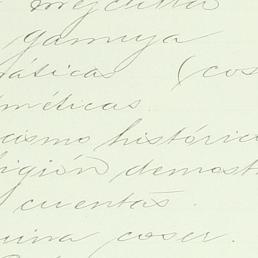 gamuza
áticas (cos
méticas.
cismo históric
ligión demost
cuentas.
uina coser.